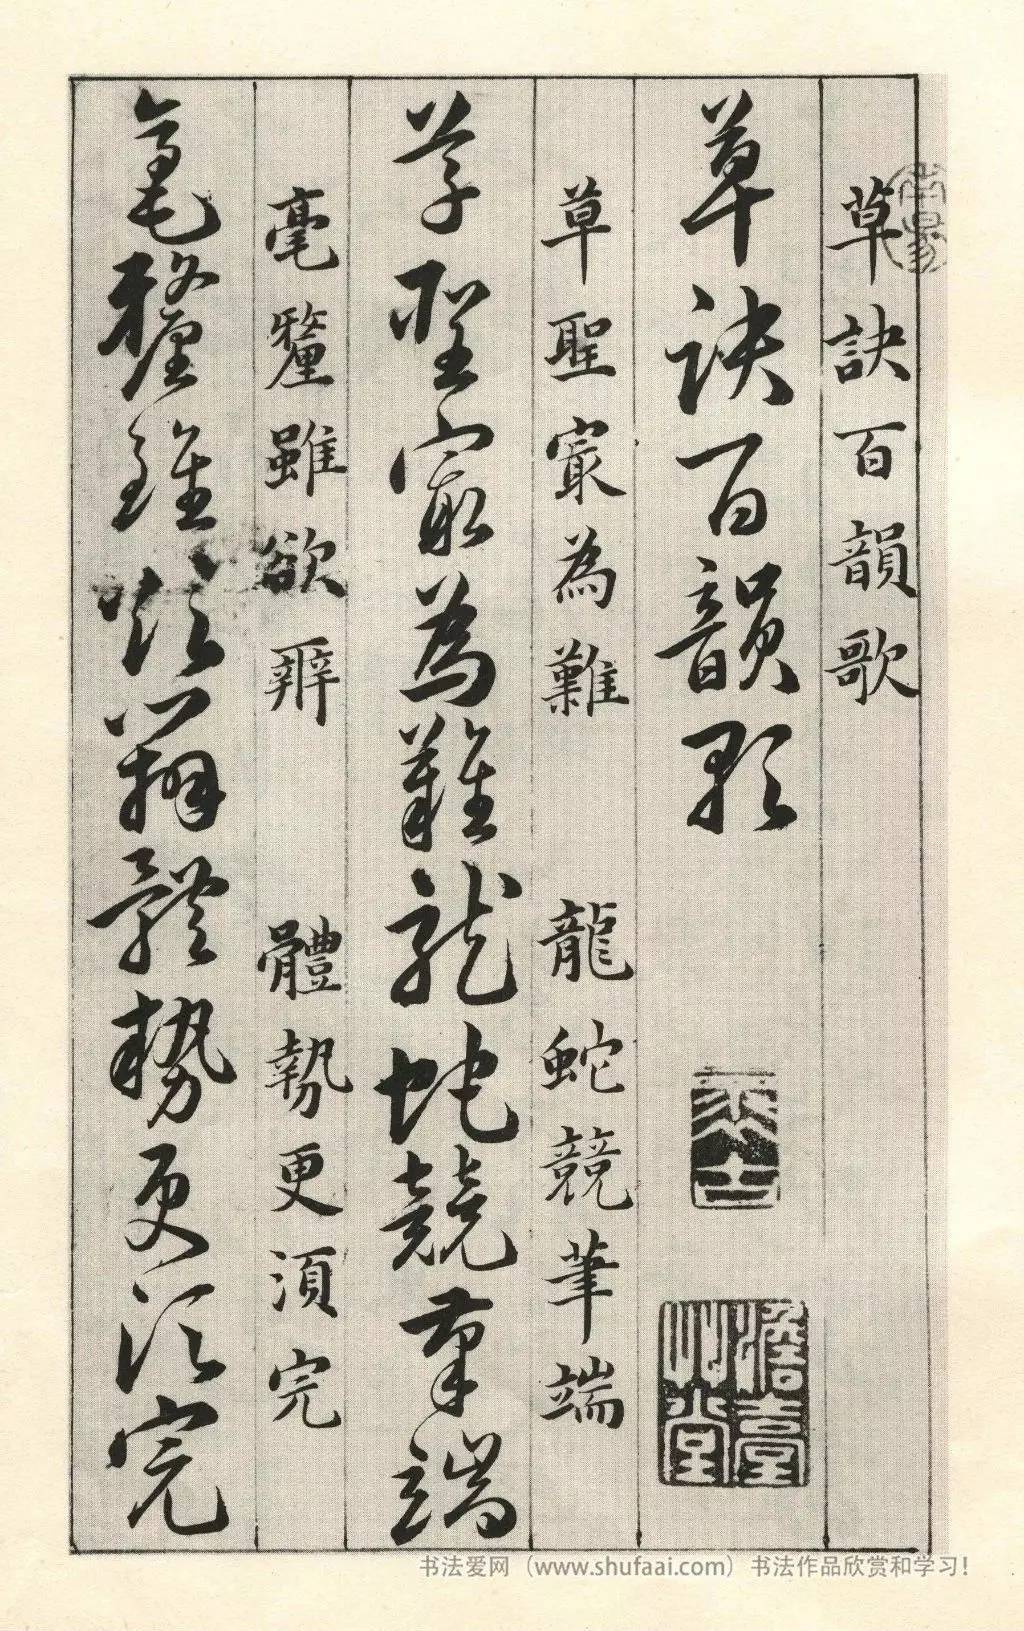 草訣百韻歌
草訣百韻歌
草聖寂為難 龍蛇競筆端
草聖寂為難龍蛇競筆端
毫釐雖欲辨 體勢更須完
毫釐雖欲辨體勢更須完
书法爱网（www.shufaai.com）书法作品欣赏和学习！